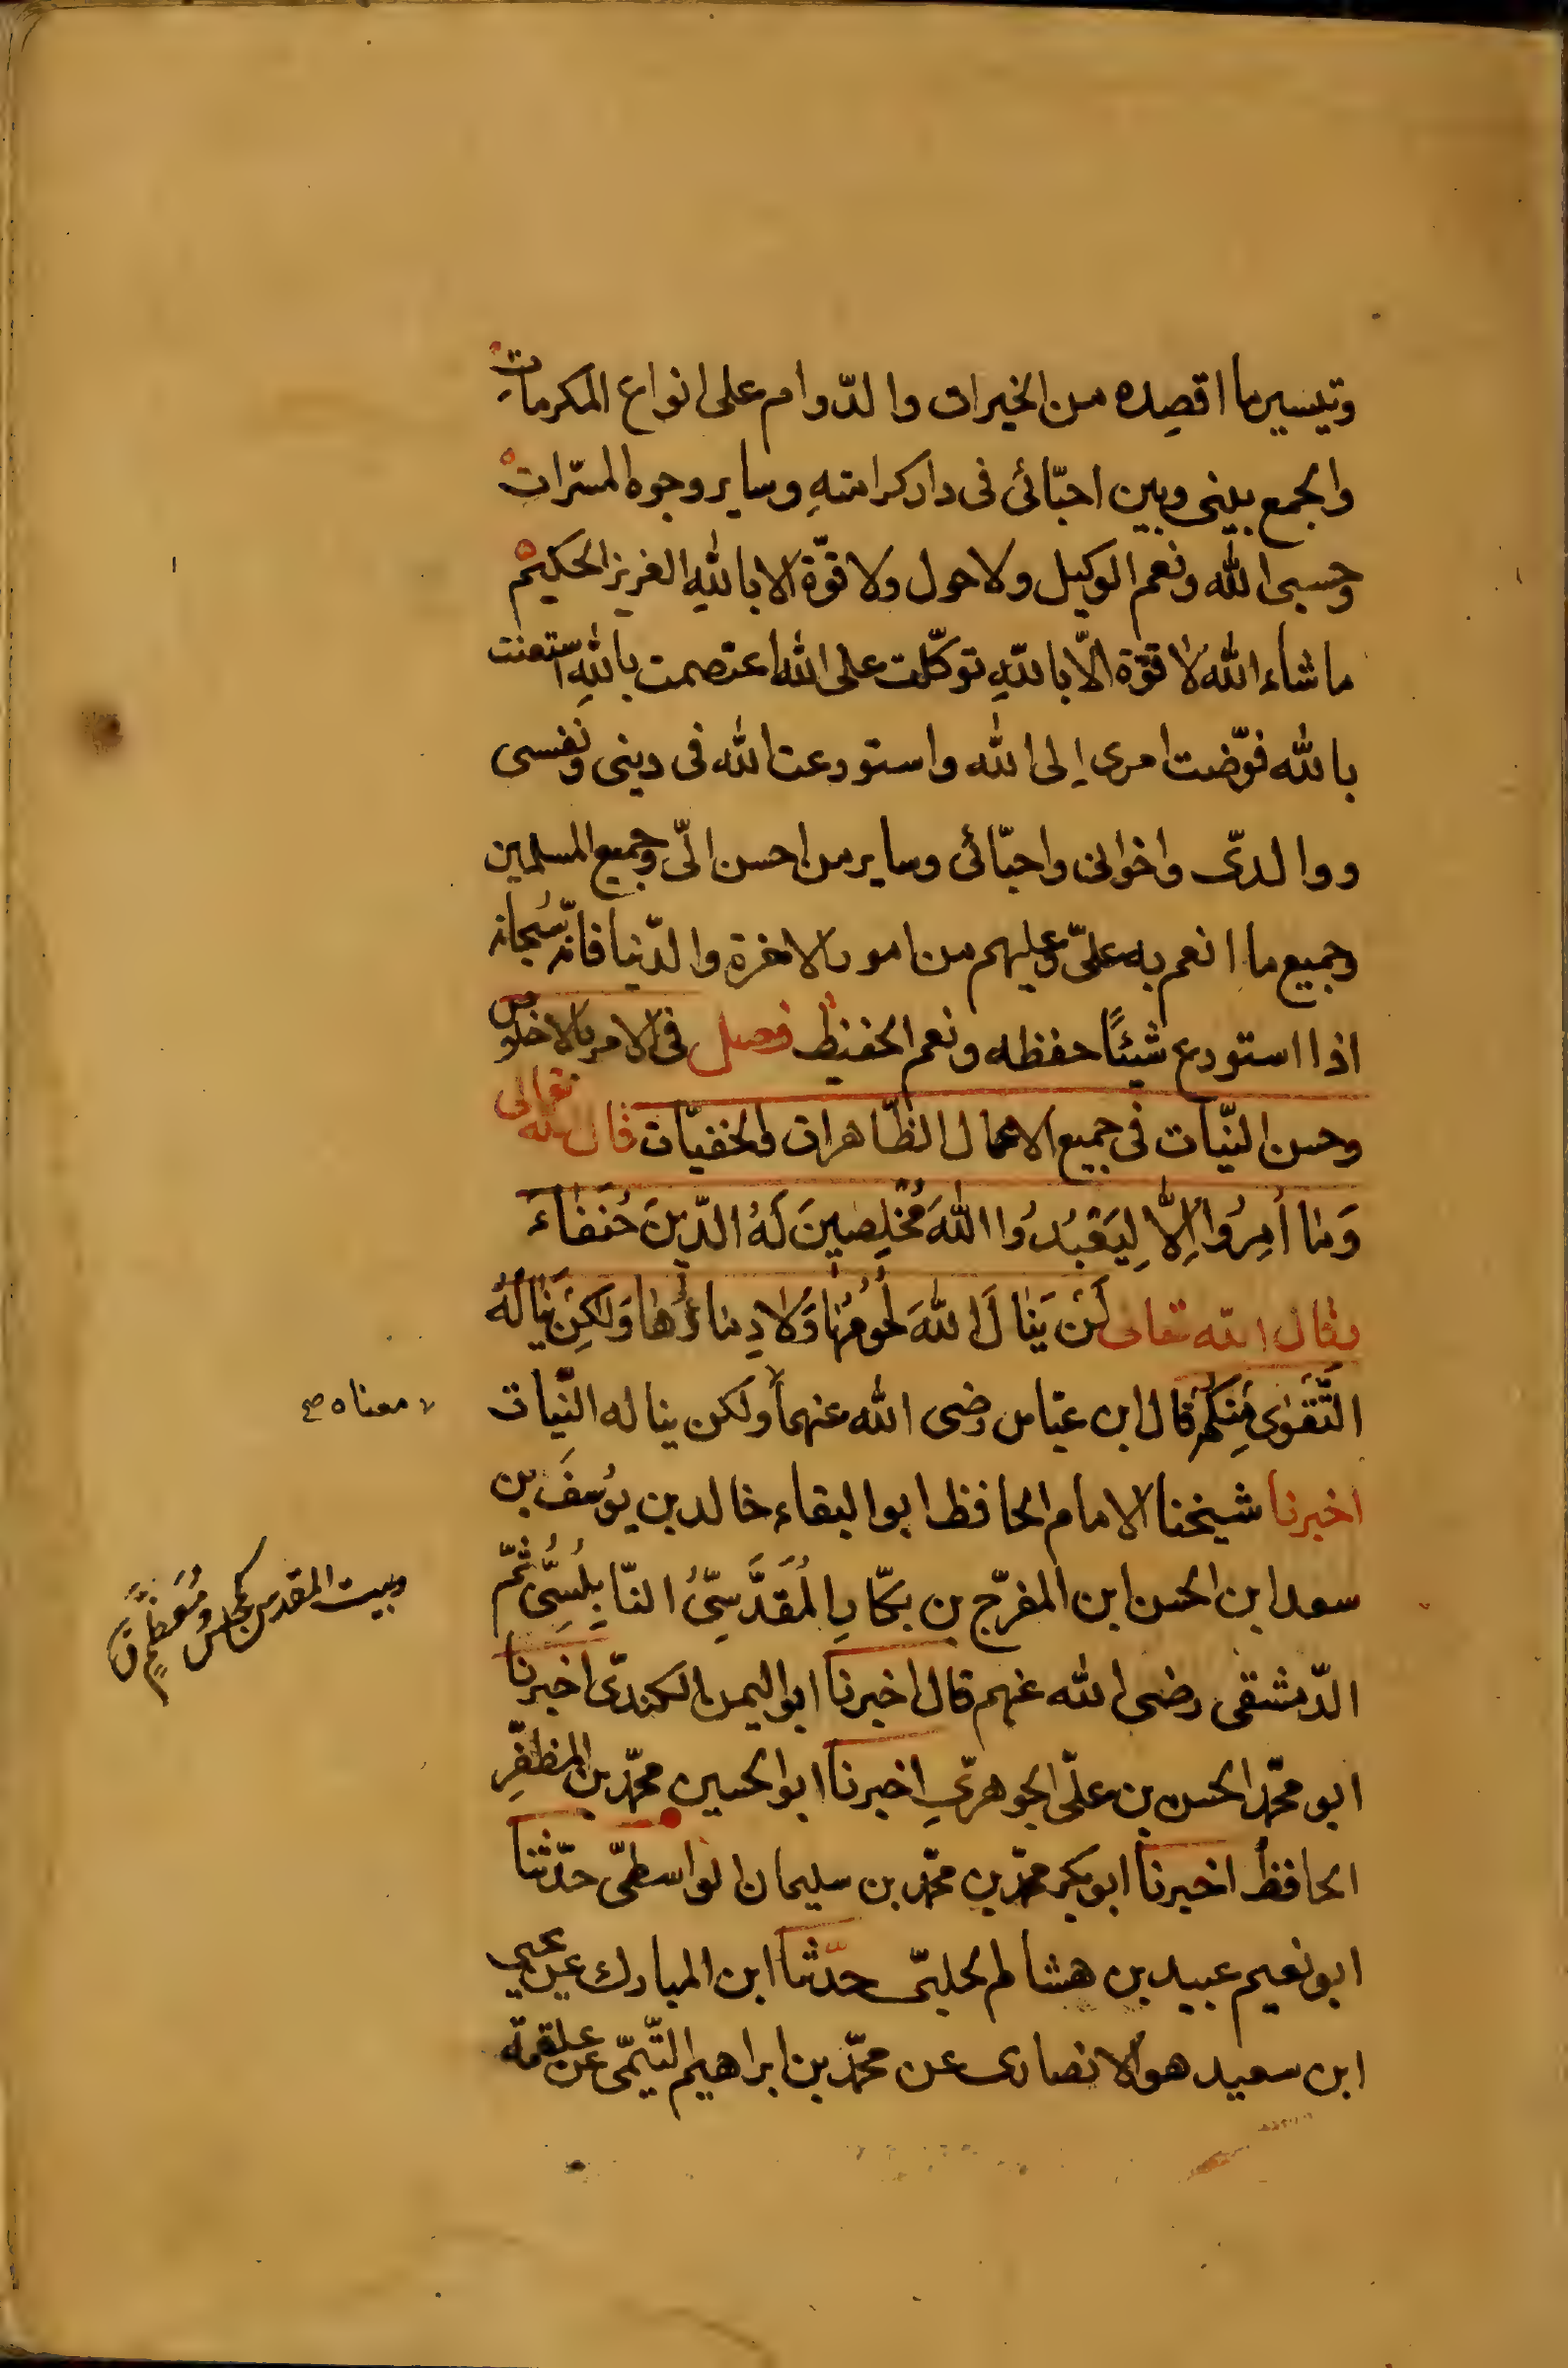 وتيسير ما اقصِده من الخيرات والدّوام على انواع المكرمات
والجمع بينى وبين احبّائى فى دار كرامتهِ وساير وجوه المسرّات
وحسبى الله ونعم الوكيل ولا حول ولا قوّة الا باللهِ العزيز الحكيم
ما شاء الله لا قوّة الّا باللهِ توكّلت على الله اعتصمت باللهِ استعنت
بالله فوّضت امرى إلى الله واستودعت الله فى دينى ونفسى
ووالدىّ واخوانى واحبّائى وساير من احسن الىّ وجميع المسلمين
وجميع ما انعم به علىّ وعليهم من امور الاخرة والدّنيا فانّه سُبحانه
اذا استودع شيئًا حفظه ونعم الحفيظ فصل فى الامر بالاخلاص
وحسن النيّات فى جميع الاعمال الظّاهرات والخفيّات قال الله تعالى
وَمَا أُمِرُوا إِلَّا لِيَعْبُدُوا اللهَ مُخْلِصِينَ لَهُ الدِّينَ حُنَفَاءَ
وقال الله تعالى لَنْ يَنَالَ اللهَ لُحُومُهَا وَلَا دِمَاؤُهَا وَلَكِنْ يَنَالُهُ
التَّقْوَى مِنكُمْ قال ابن عبّاس رضى الله عنهما ولكن يناله النّيات
معناه صح
اخبرنا شيخنا الامام الحافظ ابو البقاء خالد بن يوُسفَ بن
سعد ابن الحسن ابن المفرّج بن بكّارِ المُقَدَّسِىُّ النّابِلُسِىُّ ثُمّ
وبيت المقدس كمجلس ومُعَظّمٍ ق
الدّمشقى رضى الله عنهم قال اخبرنا ابو اليمن الكندىّ اخبرنا
ابو محمّد الحسن بن علىّ الجوهرىِّ اخبرنا ابو الحسين محمّد بن المظفّرِ
الحافظُ اخبرنا ابو بكر محمّد بن محمّد بن سليمان الواسطىّ حدّثنا
ابو نعيم عبيد بن هشام الحلبىّ حدّثنا ابن المبارك عن يحيى
ابن سعيد هو الانصارى عن محمّد بن ابراهيم التّيمّى عن علقمة